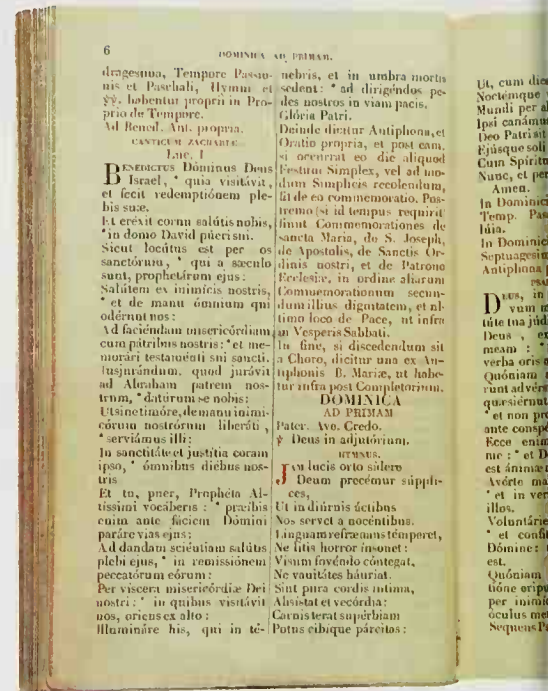 6
DOMINICA AD PRIMAM.
dragesima, Tempore Passio-
nis et Paschali, Hymni et
℣℣. habentur proprii in Pro-
prio de Tempore.
Ad Bened. Ant. propria.
CANTICUM ZACHARIÆ.
Luc. I
BENEDICTUS Dóminus Deus
Israel, * quia visitávit,
et fecit redemptiónem ple-
bis suæ.
Et eréxit cornu salútis nobis,
* in domo David púeri sui.
Sicut locútus est per os
sanctórum, * qui a sæculo
sunt, prophetárum ejus:
Salútem ex inimícis nostris,
* et de manu ómnium qui
odérunt nos:
Ad faciéndam misericórdiam
cum pátribus nostris: * et me-
morári testaménti sui sancti.
Jusjurándum, quod jurávit
ad Abraham patrem nos-
trum, * datúrum se nobis:
Ut sine timóre, de manu inimi-
córum nostrórum liberáti,
* serviámus illi:
In sanctitáte et justítia coram
ipso, * ómnibus diébus nos-
tris
Et tu, puer, Prophéta Al-
tíssimi vocáberis: * præíbis
enim ante fáciem Dómini
paráre vias ejus:
Ad dandam sciéntiam salútis
plebi ejus, * in remissiónem
peccatórum eórum:
Per víscera misericórdiæ Dei
nostri: * in quibus visitávit
nos, oriens ex alto:
Illumináre his, qui in té-
nebris, et in umbra mortis
sedent: * ad dirigéndos pe-
des nostros in viam pacis.
Glória Patri.
Deinde dicitur Antiphona, et
Oratio propria, et post eam,
si occurrat eo die aliquod
Festum Simplex, vel ad mo-
dum Simplicis recolendum,
fit de eo commemoratio. Pos-
tremo (si id tempus requirit)
fiunt Commemorationes de
sancta Maria, de S. Joseph,
de Apostolis, de Sanctis Or-
dinis nostri, et de Patrono
Ecclesiæ, in ordine aliarum
Commemorationum secun-
dum illius dignitatem, et ul-
timo loco de Pace, ut infra
in Vesperis Sabbati.
In fine, si discedendum sit
a Choro, dicitur una ex An-
tiphonis B. Mariæ, ut habe-
tur infra post Completorium.
DOMINICA
AD PRIMAM
Pater. Ave. Credo.
℣ Deus in adjutórium.
HYMNUS.
JAM lucis orto sídere
Deum precémur súppli-
ces,
Ut in diúrnis áctibus
Nos servet a nocéntibus.
Linguam refrænans témperet,
Ne litis horror ínsonet:
Visum fovéndo cóntegat,
Ne vanitátes háuriat.
Sint pura cordis íntima,
Absistat et vecórdia:
Carnis terat supérbiam
Potus cibíque párcitas:
Ut, cum die
Noctémque
Mundi per a
Ipsi canámu
Deo Patri sit
Ejúsque soli
Cum Spíritu
Nunc, et per
Amen.
In Dominici
Temp. Pas
lúia.
In Dominic
Septuagesim
Antiphona
PSA
DEUS, in
vum m
túte tua júd
Deus, ex
meam: *
verba oris
Quóniam
runt advérs
quæsiérunt
* et non pro
ante conspé
Ecce enim
me: * et D
est ánimæ
Avérte ma
* et in ver
illos.
Voluntárie
* et confit
Dómine:
est.
Quóniam
tióne eripu
per inimíc
óculus me
Sequens P